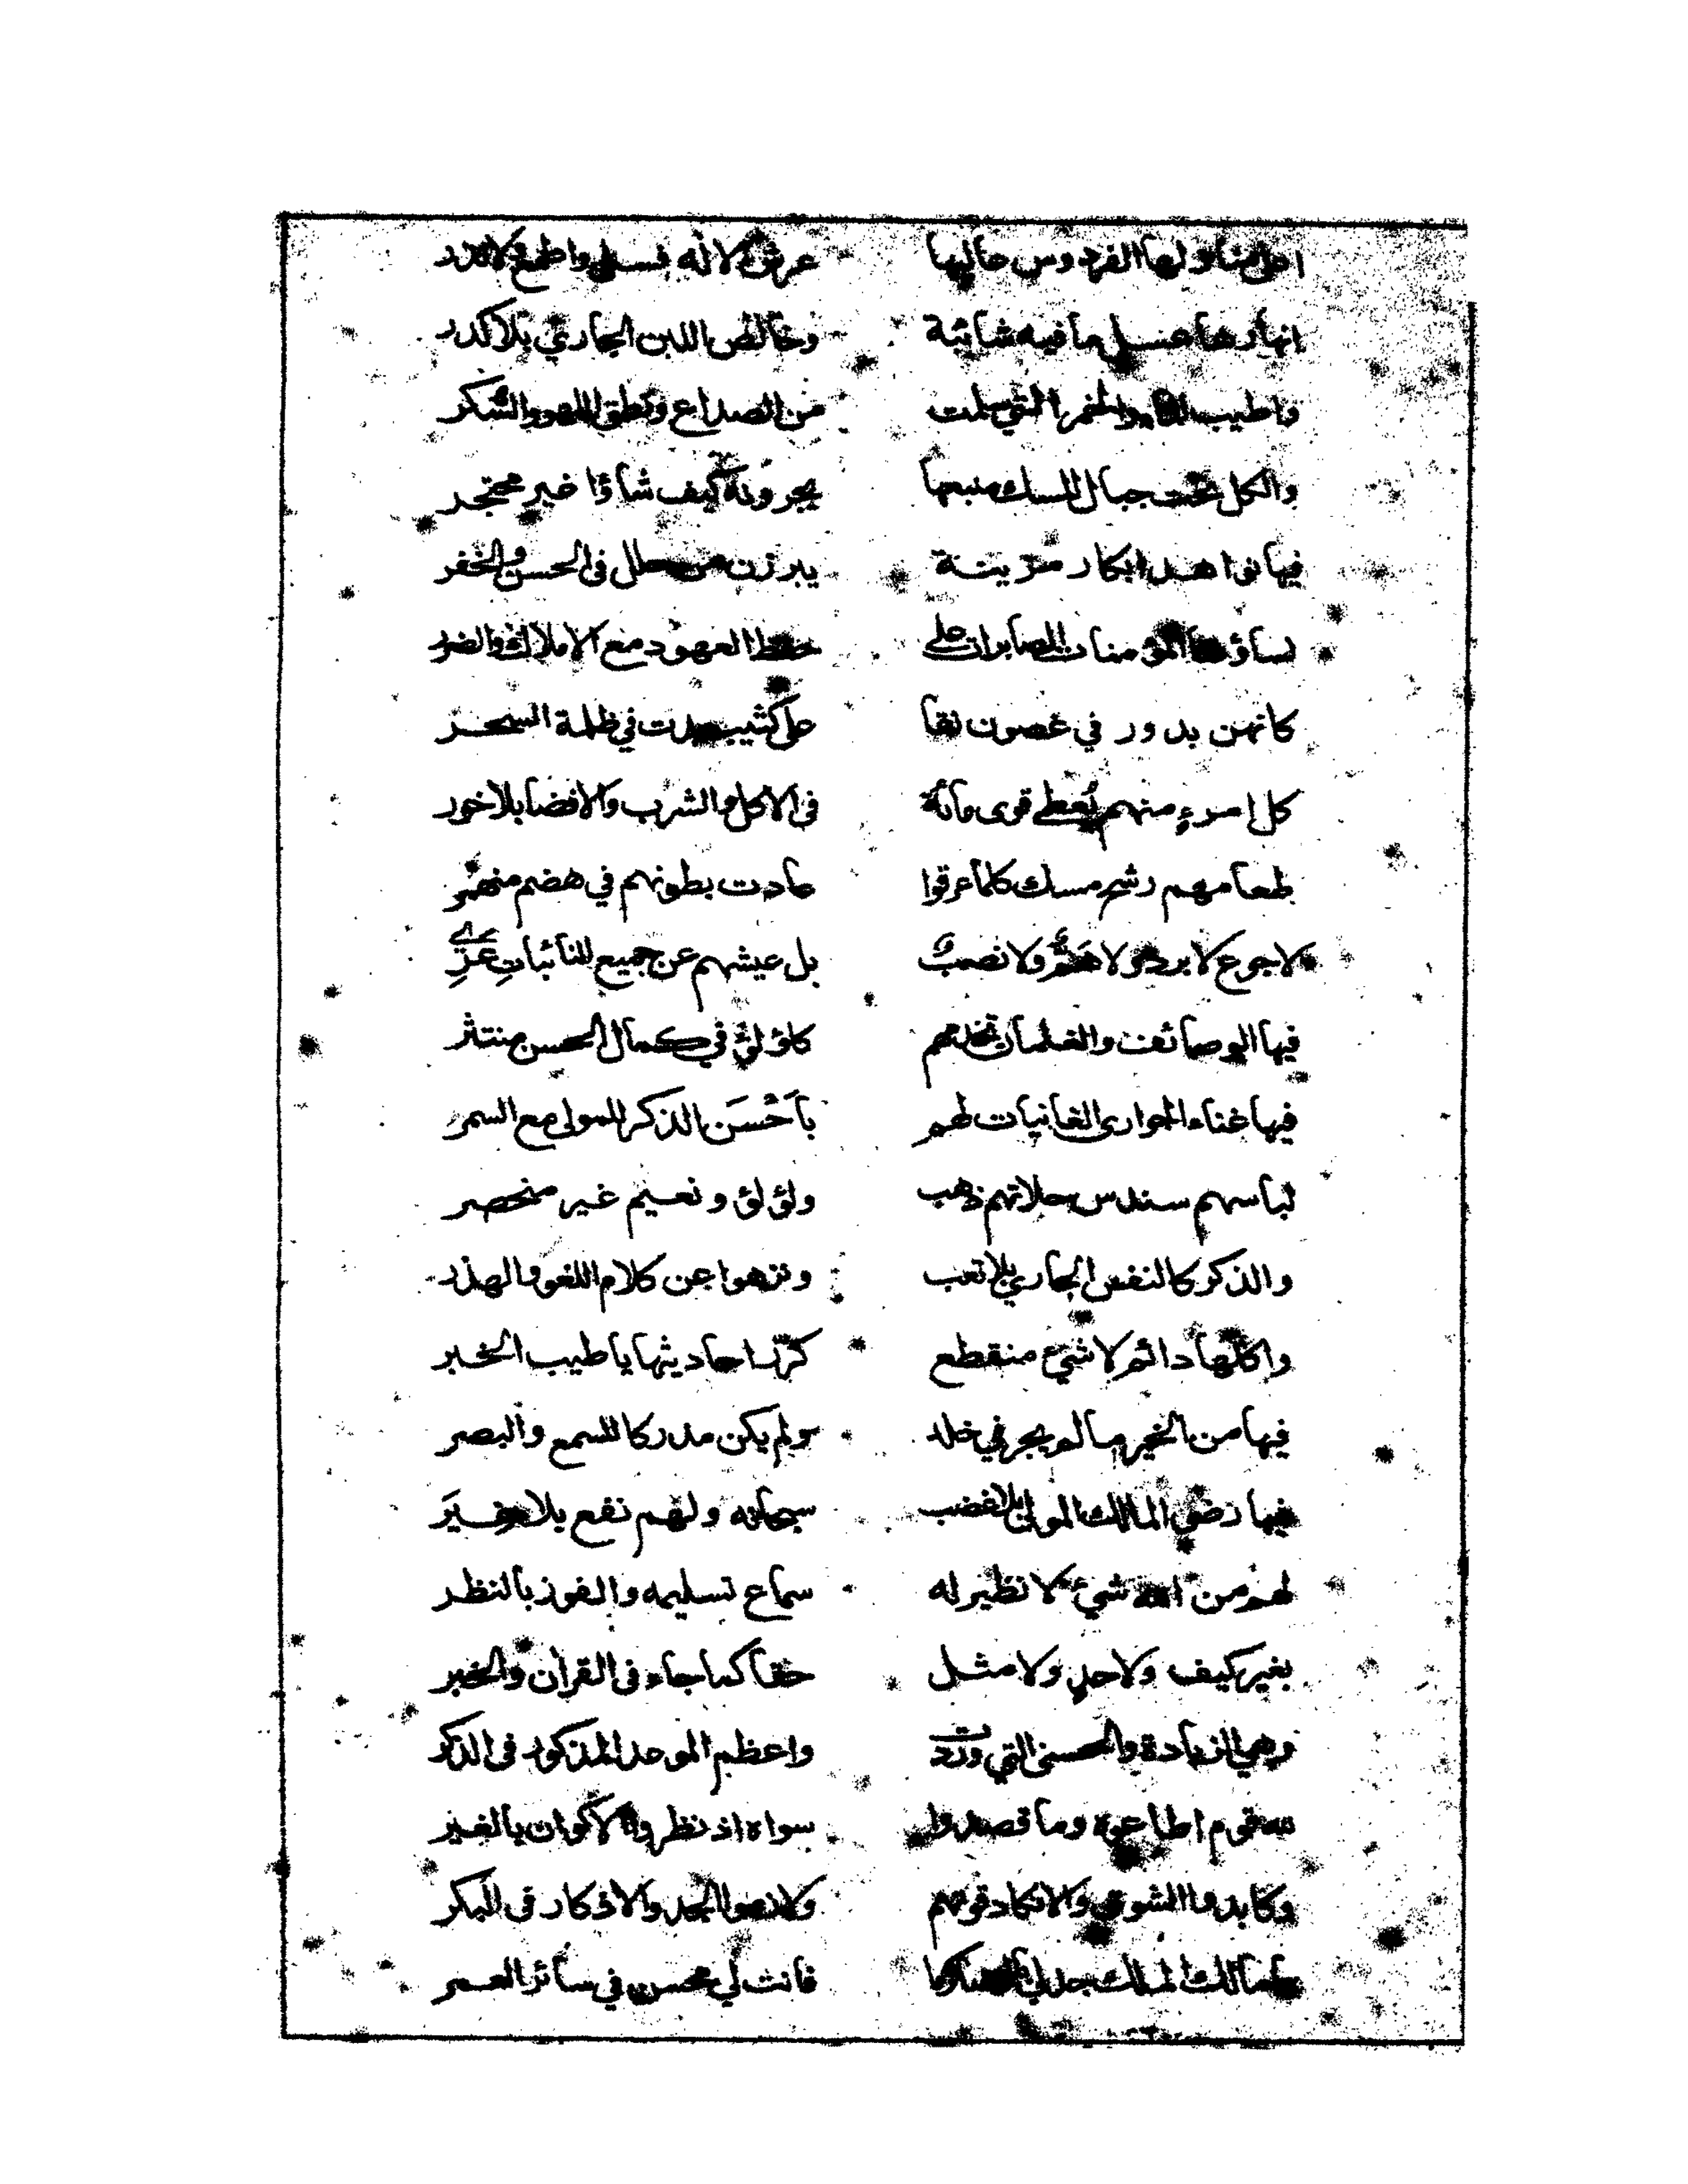 اعلى منازلها الفردوس عاليها عرش الاله فسل واطمع ولا تذر
انهارها عسل ما فيه شائبة وخالص اللبن الجاري بلا كدر
واطيب الماء والخمر التي سلمت من الصداع ونطق اللهو والسكر
والكل تحت جبال المسك منبعها يجرونه كيف شاؤا غير محتجر
فيها نواهد ابكار مزينة يبرزن من حلل في الحسن والخفر
نساؤها المؤمنات الصابرات على حفظ العهود مع الاملاك والضرر
كانهن بدور في غصون نقا على كثيب بدت في ظلمة السحر
كل امرءٍ منهم يُعطى قوى مائة في الاكل والشرب والافضا بلا خور
طعامهم رشح مسك كلما عرقوا عادت بطونهم في هضم منضمر
لا جوع لا برد لا هَمٌّ ولا نصبٌ بل عيشهم عن جميع النائباتِ عَرِي
فيها الوصائف والغلمان تخدمهم كلؤلؤ في كمال الحسن منتثر
فيها غناء الجوارى الغانيات لهم بأَحْسَن الذكر للمولى مع السمر
لباسهم سندس حلاتهم ذهب ولؤلؤ ونعيم غير منحصر
والذكر كالنفس الجاري بلا تعب ونزهوا عن كلام اللغو والهذر
واكلها دائم لا شيء منقطع كرّر احاديثها يا طيب الخبر
فيها من الخير ما لم يجر في خلد ولم يكن مدركا للسمع والبصر
فيها رضى المالك المولى بلا غضب سبحانه ولهم نفع بلا غِيَر
لهم من الله شيء لا نظير له سماع تسليمه والفوز بالنظر
بغير كيف ولا حدٍ ولا مثل حقا كما جاء في القران والخبر
وهي الزيادة والحسنى التي وردت واعظم الموعد المذكور في الذكر
لله قوم اطاعوه وما قصدوا سواه اذ نظروا الاكوان بالغير
وكابدوا الشوق والانكاد قوتهم ولازموا الجد والاذكار في البكر
يا مالك الملك جد لي فانت لي محسن في سائر العمر